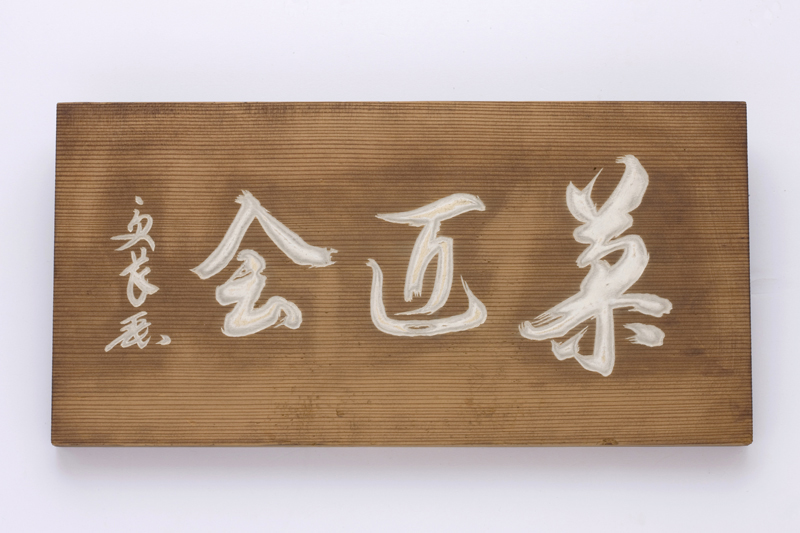 菓匠会